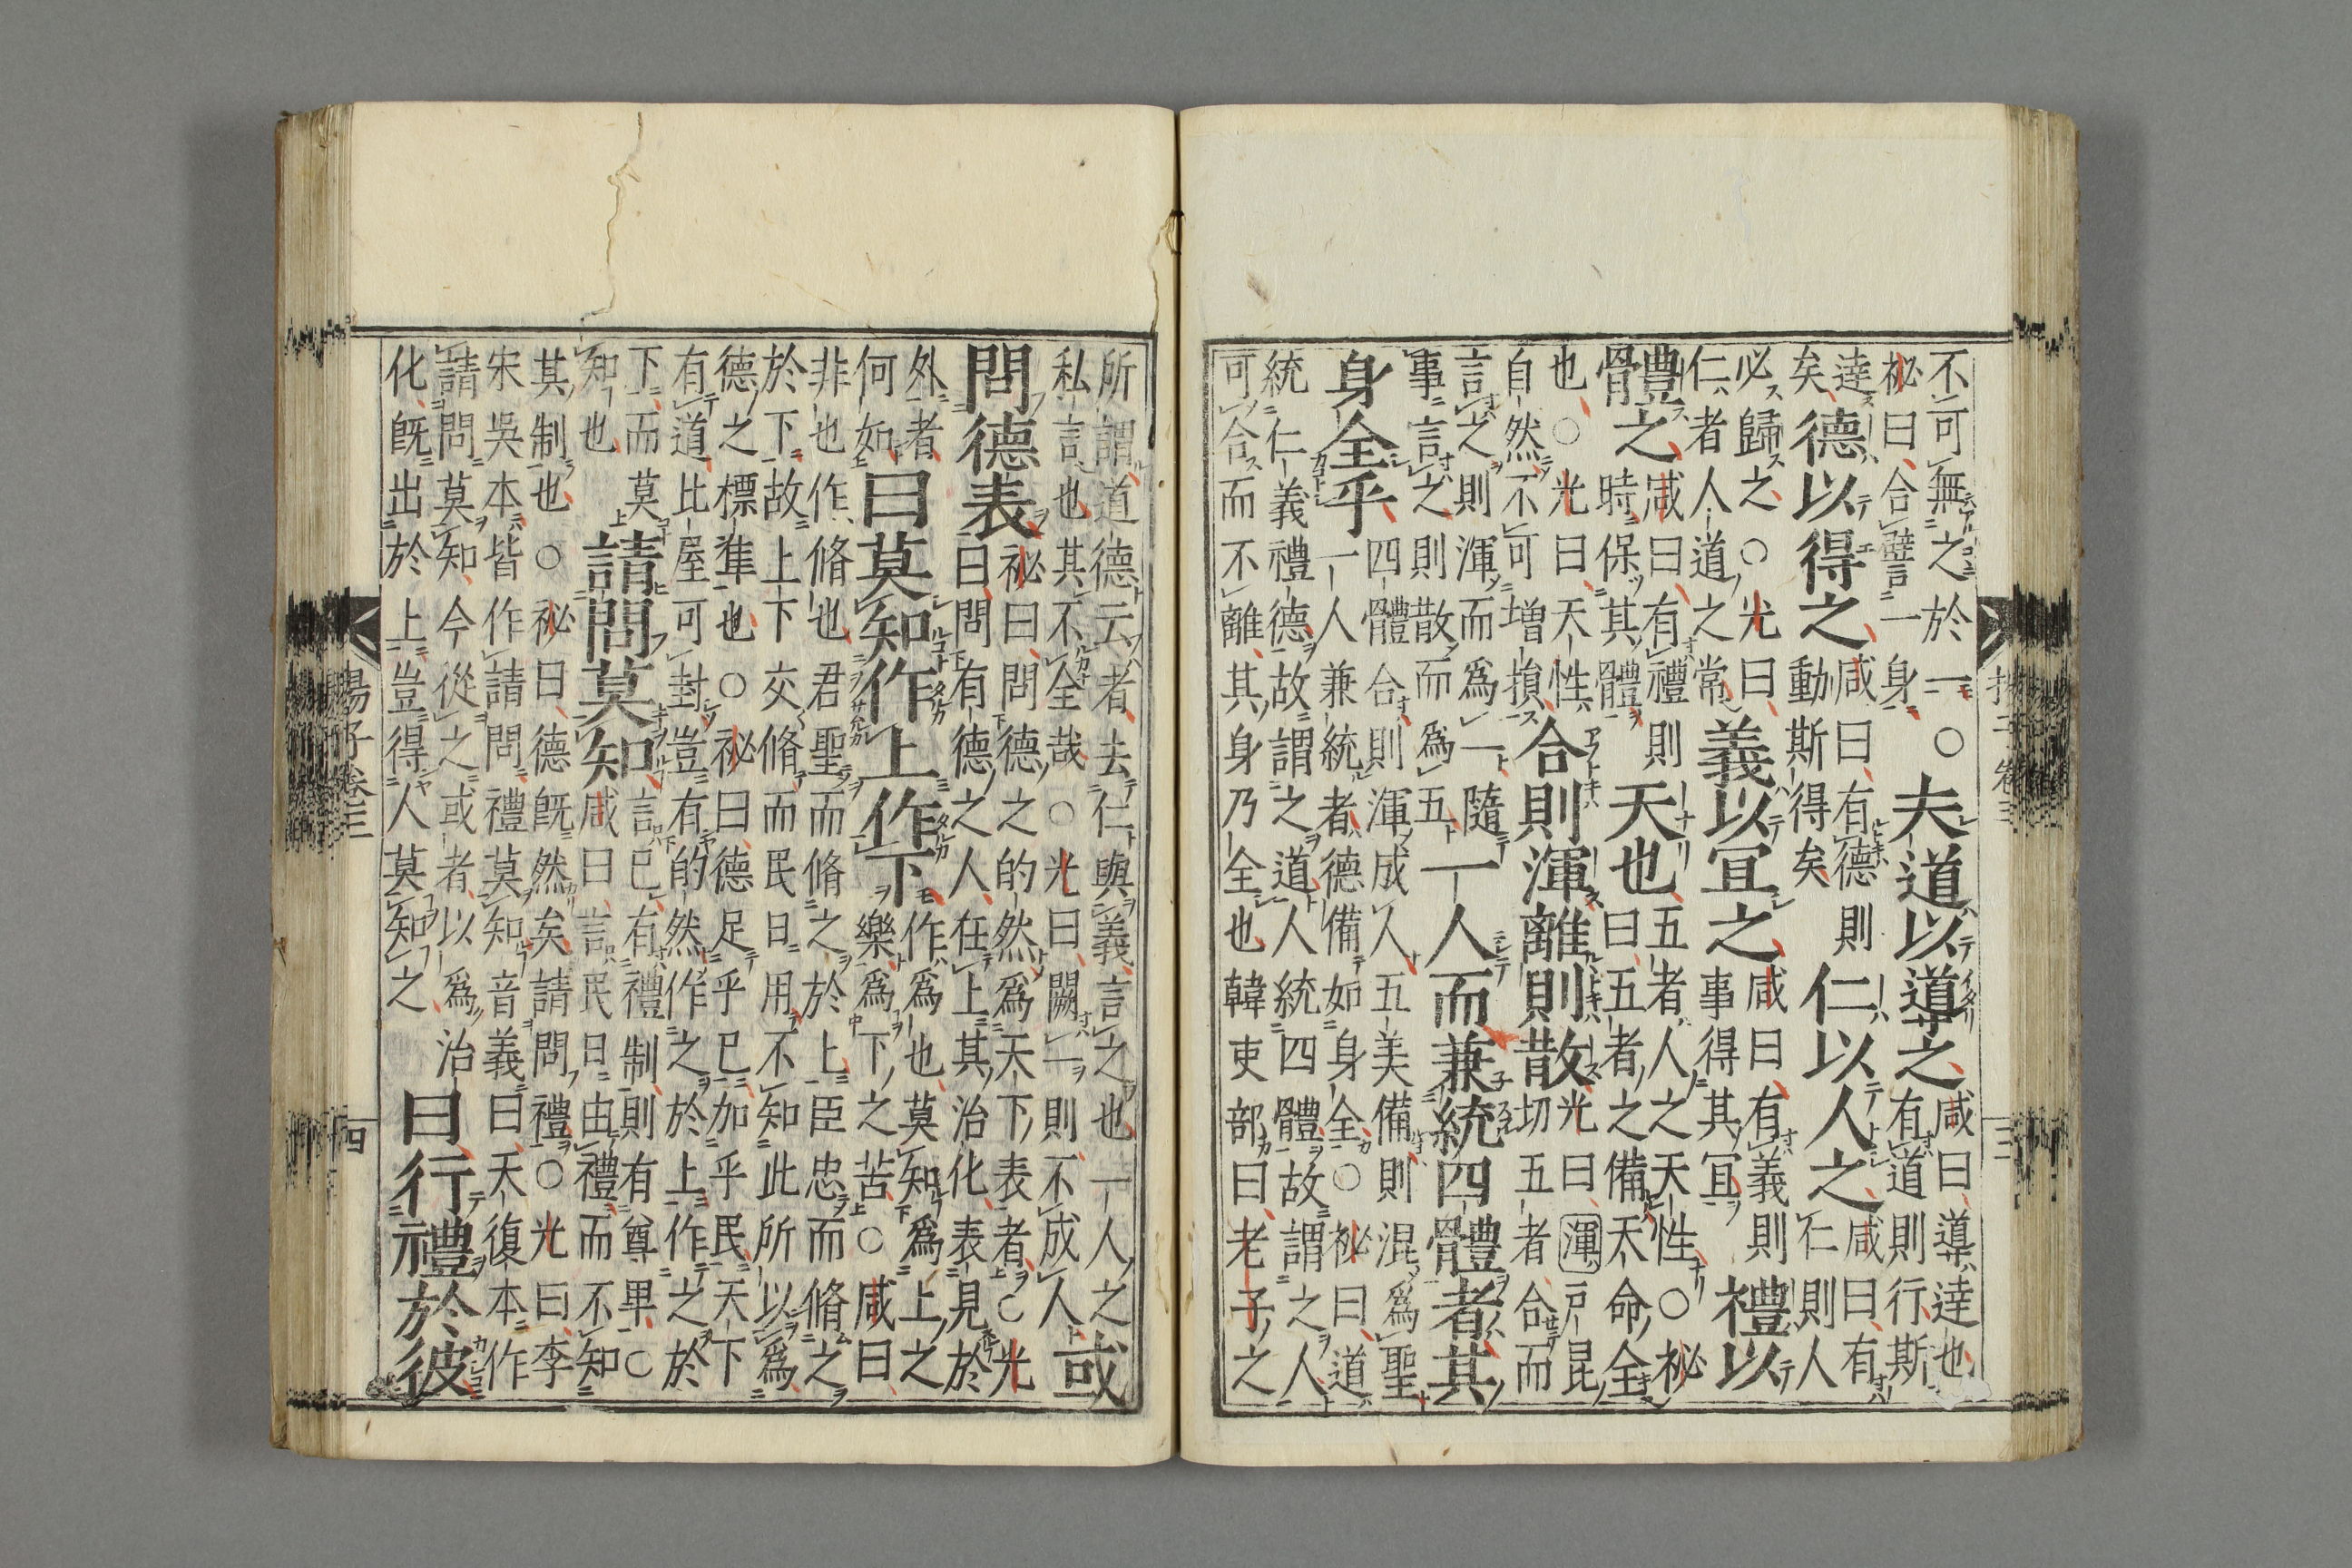 不可無之於一○
祕曰合譬言一身
夫道以導之
咸曰導達也
有道則行斯
達
矣
德以得之
咸曰有德則
動斯得矣
仁以人之
咸曰有
仁則人
必歸之○光曰
仁者人道之常
義以宜之
咸曰有義則
事得其宜
禮以
體之
咸曰有禮則
時保其體
天也
五者人之天性○祕
曰五者之備天命全
也○光曰天性
自然不可増損
合則渾離則散
光曰渾戸昆
切五者合而
言之則渾而爲一隨
事言之則散而爲五
一人而兼統四體者其
身全乎
四體合則渾成人五美備則混爲聖
一人兼統者德備如身全○祕曰道
統仁義禮德故謂之道人統四體故謂之人
可合而不離其身乃全也韓吏部曰老子之
揚子卷三
三
所謂道德云者去仁與義言之也一人之
私言也其不全哉○光曰闕一則不成人
或
問德表
祕曰問德之的然爲天下表者○光
曰問有德之人在上其治化表見於
外者
何如
曰莫知作上作下
作爲也莫知爲上之
樂爲下之苦○咸曰
非也作脩也君聖而脩之於上臣忠而脩之
於下故上下交脩而民日用不知此所以爲
德之標準也○祕曰德足乎已加乎民天下
有道比屋可封豈有的然作之於上作之於
下而莫
知也
請問莫知
言已有禮制則有尊卑○
咸曰言民日由禮而不知
其制也○祕曰德旣然矣請問禮○光曰李
宋吳本皆作請問禮莫知音義曰天復本作
請問莫知今從之或者以爲治
化旣出於上豈得人莫知之
曰行禮於彼
揚子卷三
四